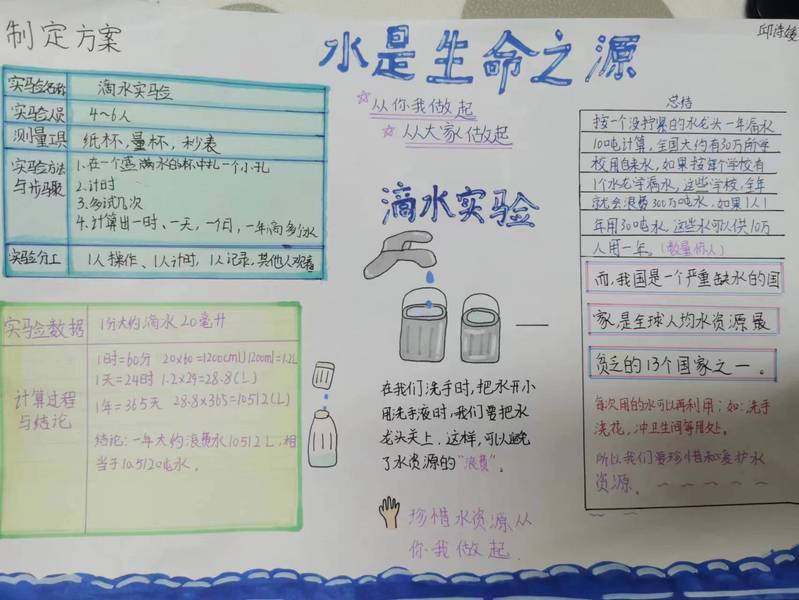 制定方案
水是生命之源
邱诗媛
从你我做起
从大家做起
实验名称
滴水实验
实验人员
4～6人
测量工具
纸杯，量杯，秒表
实验方法
与步骤
1.在一个盛满水的杯中扎一个小孔
2.计时
3.多试几次
4.计算出一时、一天，一个月，一年滴多少水
实验分工
1人操作、1人计时，1人记录，其他人观看
实验数据
1分大约滴水20毫升
计算过程
与结论
1时=60分 20x60=1200(ml) 1200ml=1.2L
1天=24时 1.2x24=28.8(L)
1年=365天 28.8x365=10512(L)
结论:一年大约浪费水10512L，相
当于10.512吨水。
滴水实验
在我们洗手时，把水开小
用洗手液时，我们要把水
龙头关上.这样，可以避免
了水资源的"浪费"。
珍惜水资源，从
你我做起.
总结
按一个没拧紧的水龙头一年漏水
10吨计算，全国大约有30万所学
校用自来水，如果按每个学校有
1个水龙头漏水，这些学校，全年
就会浪费300万吨水，如果1人1
年用30吨水.这些水可以供10万
人用一年。(数量惊人)
而，我国是一个严重缺水的国
家，是全球人均水资源最
贫乏的13个国家之一。
每次用的水可以再利用；如：洗手
浇花，冲卫生间等用处。
所以我们要珍惜和爱护水
资源。